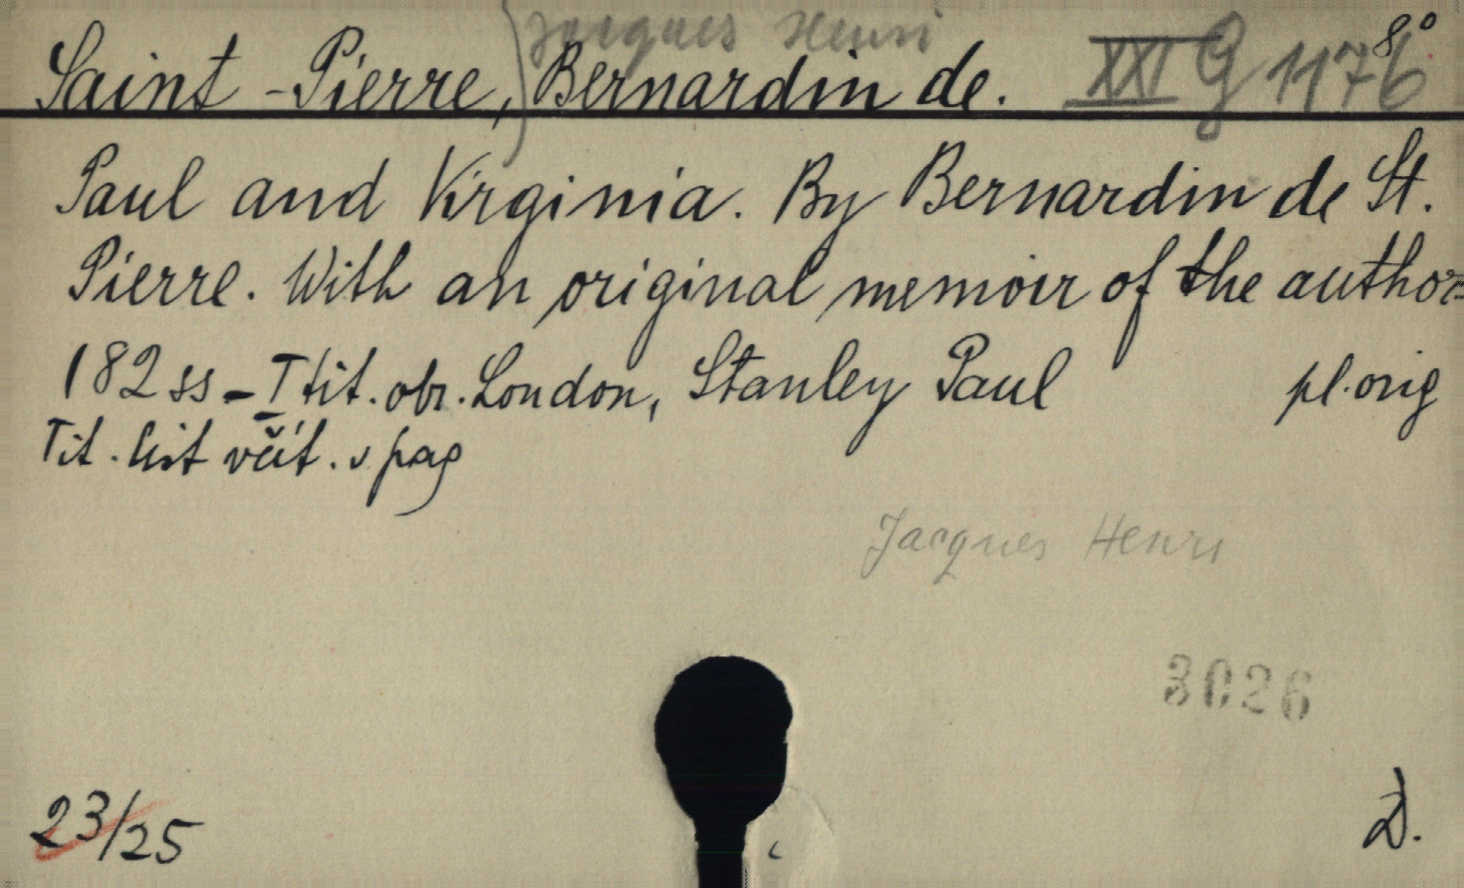 Jacques Henri
Saint-Pierre, Bernardin de. XXI G 1176 8°
Paul and Virginia. By Bernardin de St.
Pierre. With an original memoir of the author
182 ss – I tit. obr. London, Stanley Paul pl. orig
Tit. list včít. v pag
Jacques Henri
3026
23/25 D.